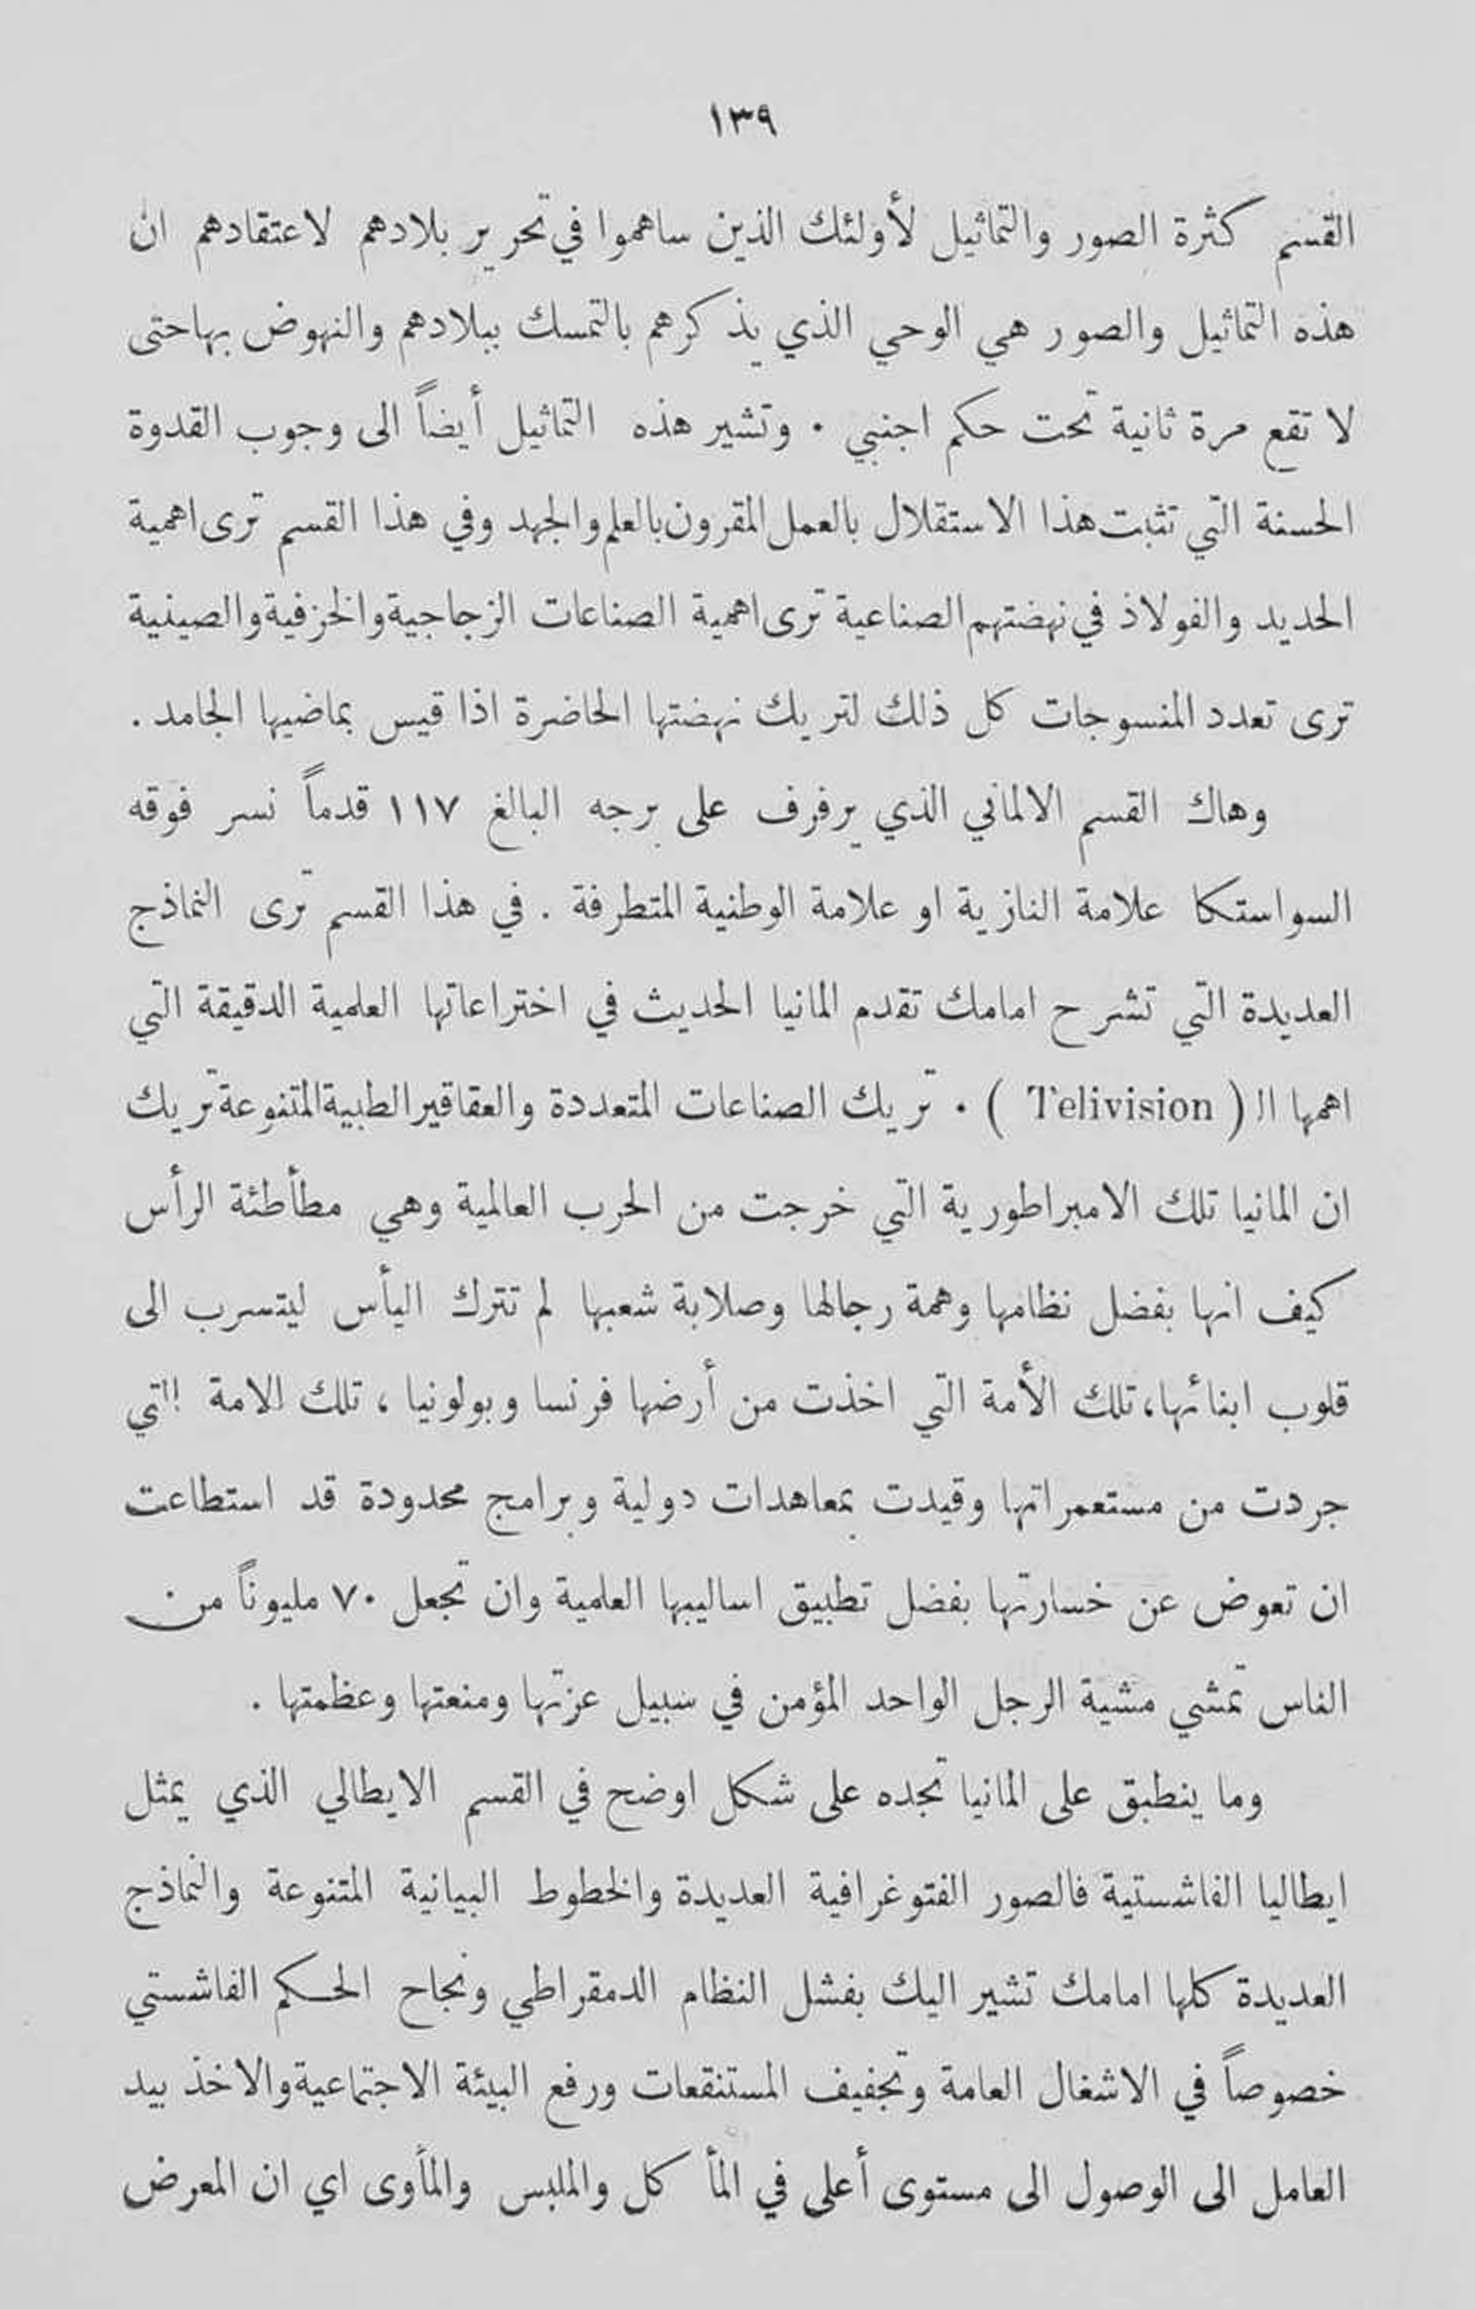 ١٣٩
القسم كثرة الصور والتماثيل لأولئك الذين ساهموا في تحرير بلادهم لاعتقادهم ان
هذه التماثيل والصور هي الوحي الذي يذكرهم بالتمسك ببلادهم والنهوض بها حتى
لا تقع مرة ثانية تحت حكم اجنبي . وتشير هذه التماثيل أيضاً الى وجوب القدوة
الحسنة التي تثبت هذا الاستقلال بالعمل المقرون بالعلم والجهد وفي هذا القسم ترى اهمية
الحديد والفولاذ في نهضتهم الصناعية ترى اهمية الصناعات الزجاجية والخزفية والصينية
ترى تعدد المنسوجات كل ذلك لتريك نهضتها الحاضرة اذا قيس بماضيها الجامد .
وهاك القسم الالماني الذي يرفرف على برجه البالغ ١١٧ قدماً نسر فوقه
السواستكا علامة النازية او علامة الوطنية المتطرفة . في هذا القسم ترى النماذج
العديدة التي تشرح امامك تقدم المانيا الحديث في اختراعاتها العلمية الدقيقة التي
اهمها الـ ( Telivision ) . تريك الصناعات المتعددة والعقاقير الطبية المتنوعة تريك
ان المانيا تلك الامبراطورية التي خرجت من الحرب العالمية وهي مطأطئة الرأس
كيف انها بفضل نظامها وهمة رجالها وصلابة شعبها لم تترك اليأس ليتسرب الى
قلوب ابنائها، تلك الأمة التي اخذت من أرضها فرنسا وبولونيا ، تلك الامة التي
جردت من مستعمراتها وقيدت بمعاهدات دولية وبرامج محدودة قد استطاعت
ان تعوض عن خسارتها بفضل تطبيق اساليبها العلمية وان تجعل ٧٠ مليوناً من
الناس تمشي مشية الرجل الواحد المؤمن في سبيل عزتها ومنعتها وعظمتها .
وما ينطبق على المانيا تجده على شكل اوضح في القسم الايطالي الذي يمثل
ايطاليا الفاشستية فالصور الفتوغرافية العديدة والخطوط البيانية المتنوعة والنماذج
العديدة كلها امامك تشير اليك بفشل النظام الدمقراطي ونجاح الحكم الفاشستي
خصوصاً في الاشغال العامة وتجفيف المستنقعات ورفع البيئة الاجتماعية والاخذ بيد
العامل الى الوصول الى مستوى أعلى في المأكل والملبس والمأوى اي ان المعرض